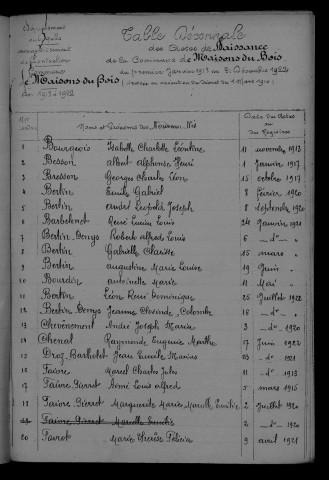 Département
du Doubs
arrondissement
de Pontarlier
Commune
de Maisons du Bois
de 1913 à 1922
Table Décennale
des Actes de Naissance
de la Commune de Maisons du Bois
du premier Janvier 1913 au 31 Décembre 1922
Noms et Prénoms des Nouveaux-Nés
Date des Actes
ou
des Registres
1 Bourgeois Isabelle Charlotte Léontine 11 novembre 1913
2 Besson Albert Alphonse Henri 1 Janvier 1917
3 Bresson Georges Charles Léon 15 octobre 1917
4 Bertin Emile Gabriel 8 février 1920
5 Bertin André Léopold Joseph 8 Septembre 1920
6 Barbenet René Lucien Louis 24 Janvier 1921
7 Bertin Denys Robert Alfred Louis 6 -d°-
8 Bertin Gabrielle Clarisse 15 mars
9 Bertin Augustine Marie Louise 19 Juin
10 Bourdin Antoinette Marie 11 Mai
11 Bertin Léon René Dominique 25 Juillet 1922
12 Bertin Denys Jeanne Colombe 18 -d°-
13 Chevènement André Joseph Marie 3 -d°- 1920
14 Chenal Raymonde Eugénie Marthe 17 Juin 1922
15 Droz-Barthelet Jean Emile Marius 23 -d°- 1921
16 Faivre Marcel Charles Jules 11 -d°- 1913
17 Faivre Pierret Aimé Louis Alfred 5 mars 1915
18 Faivre Pierret Marguerite Marie Emilie 2 Juillet 1920
19 Faivre Pierret Marcelle 2 -d°- 1920
20 Favrot Marie Thérèse Félicie 9 avril 1921